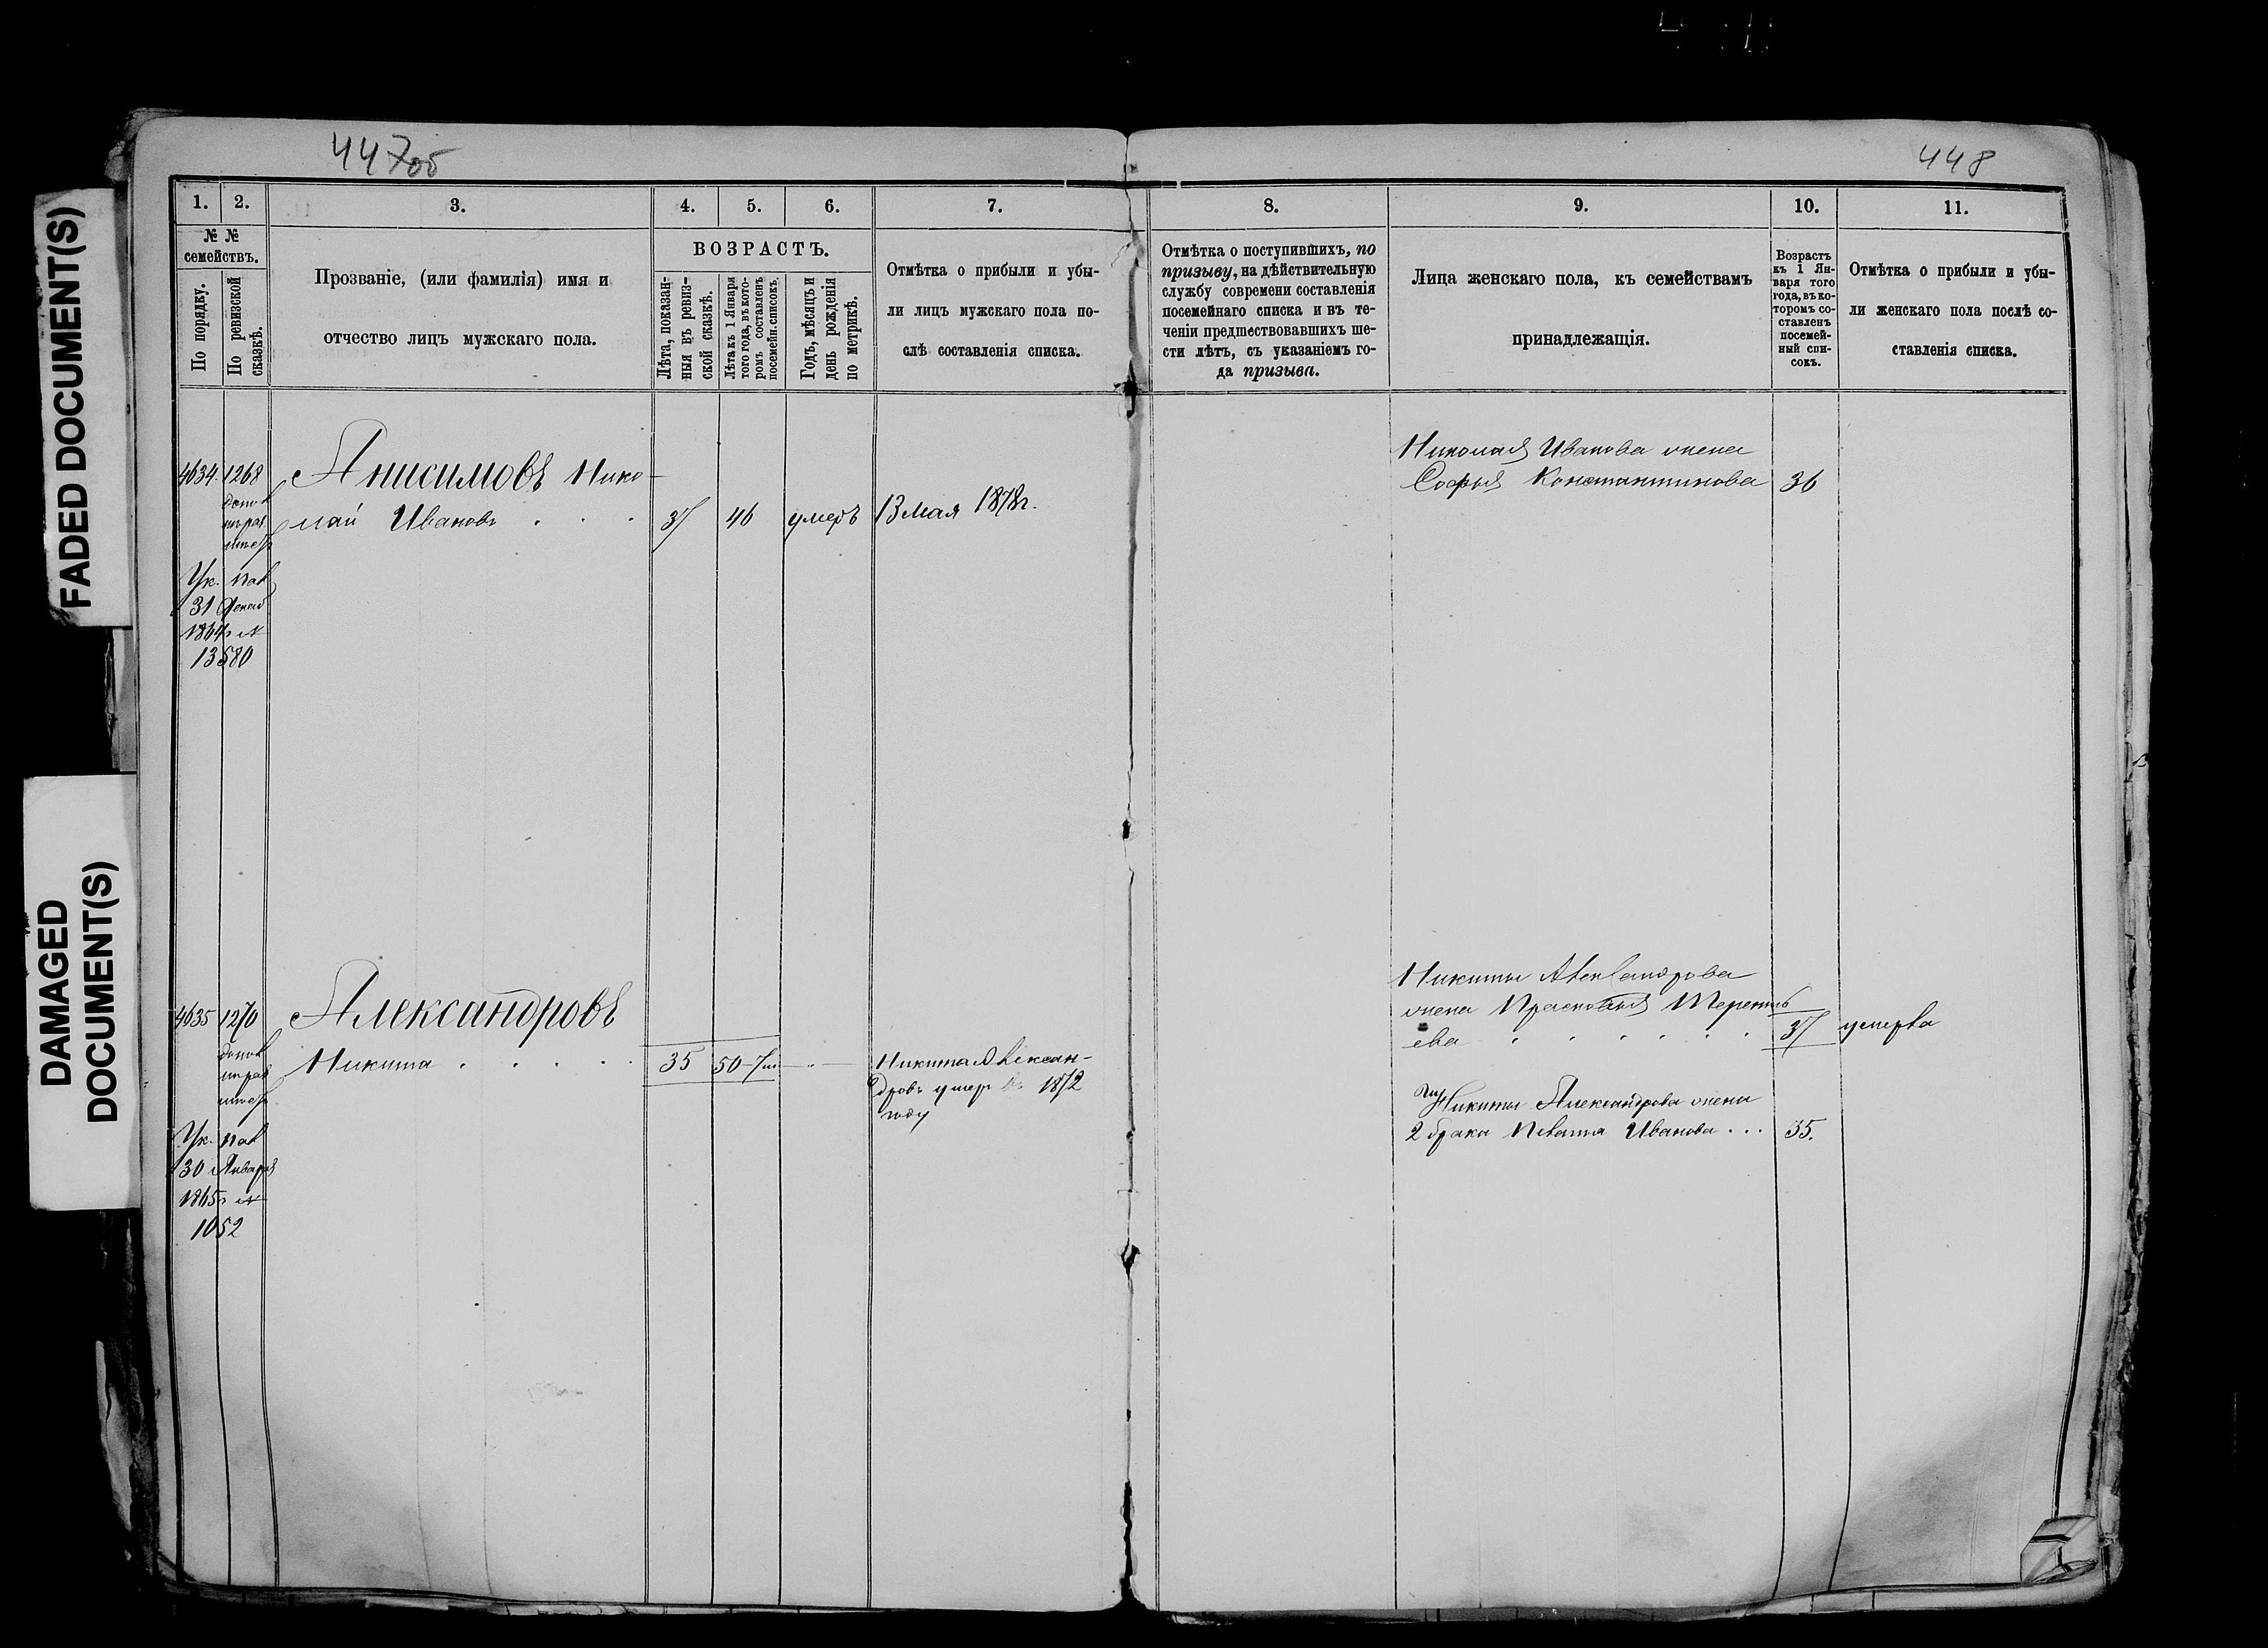 447об
448
FADED DOCUMENT(S)
DAMAGED
DOCUMENT(S)
1.
2.
3.
4.
5.
6.
7.
8.
9.
10.
11.
№ №
семействъ.
По порядку.
По ревизской
сказкѣ.
Прозваніе, (или фамилія) имя и
отчество лицъ мужскаго пола.
ВОЗРАСТЪ.
Лѣта, показан-
ныя въ ревиз-
ской сказкѣ.
Лѣта къ 1 Января
того года, въ кото-
ромъ составленъ
посемейн. списокъ.
Годъ, мѣсяцъ и
день рожденія
по метрикѣ.
Отмѣтка о прибыли и убы-
ли лицъ мужскаго пола по-
слѣ составленія списка.
Отмѣтка о поступившихъ, по
призыву, на дѣйствительную
службу современи составленія
посемейнаго списка и въ те-
ченіи предшествовавшихъ ше-
сти лѣтъ, съ указаніемъ го-
да призыва.
Лица женскаго пола, къ семействамъ
принадлежащія.
Возрастъ
къ 1 Ян-
варя того
года, въ ко-
торомъ со-
ставленъ
посемей-
ный спи-
сокъ.
Отмѣтка о прибыли и убы-
ли женскаго пола послѣ со-
ставленія списка.
4634. 1268
Анисимовъ Нико-
лай Ивановъ 37 46 умеръ 13 Мая 1878г.
Николая Иванова жена
Софья Константинова 36
Ук. пал
31 Декаб
1864г №
13580
4635 1270
Александровъ
Никита 35 50
Никита Алексан-
дровъ умеръ въ 1872
году
Никиты Александрова
жена Прасковья Терентъ
ева 37 умерла
Никиты Александрова жена
2 брака Иванова . . . 35.
Ук. пал
30 Января
1865г №
1052